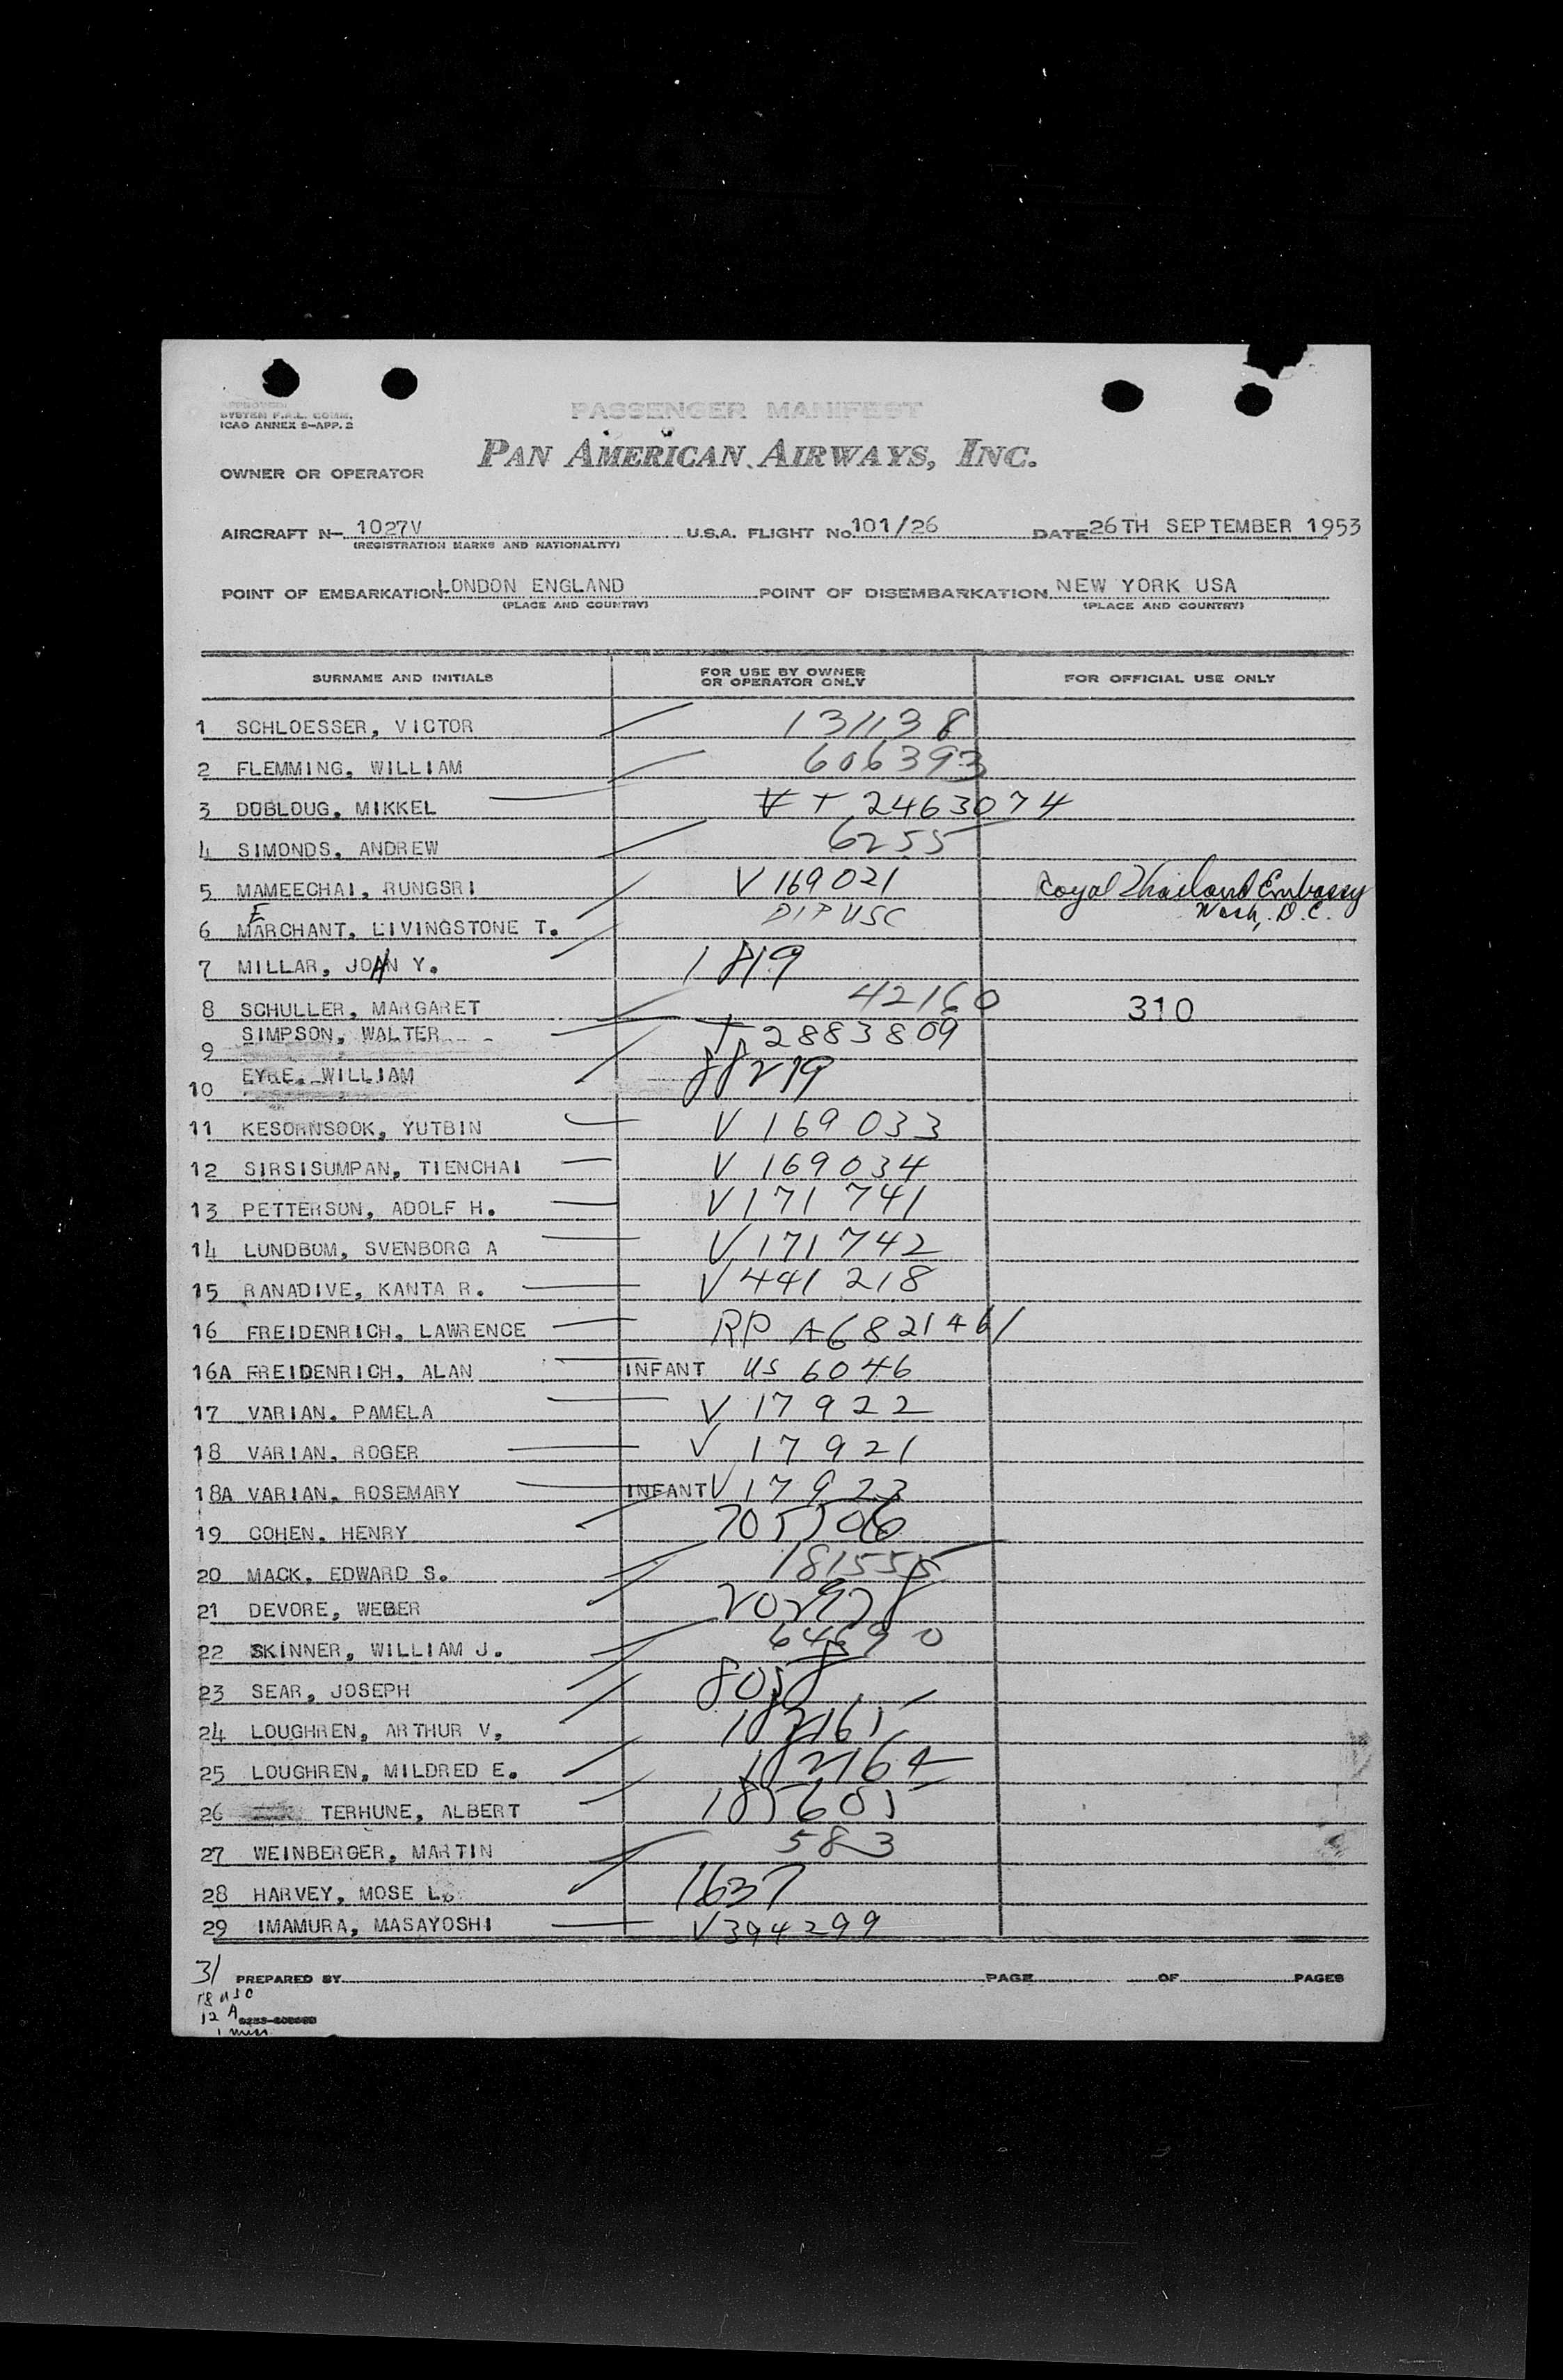 APPROVED
SYSTEM F.A.L. COMM.
ICAO ANNEX 9-APP. 2
PASSENGER MANIFEST
PAN AMERICAN AIRWAYS, INC.
OWNER OR OPERATOR
AIRCRAFT N- 1027V U.S.A. FLIGHT No. 101/26 DATE 26TH SEPTEMBER 1953
(REGISTRATION MARKS AND NATIONALITY)
POINT OF EMBARKATION LONDON ENGLAND POINT OF DISEMBARKATION NEW YORK USA
(PLACE AND COUNTRY) (PLACE AND COUNTRY)
SURNAME AND INITIALS FOR USE BY OWNER OR OPERATOR ONLY FOR OFFICIAL USE ONLY
1 SCHLOESSER, VICTOR 131138
2 FLEMMING, WILLIAM 606393
3 DOBLOUG, MIKKEL V T 2463074
4 SIMONDS, ANDREW 6255
5 MAMEECHAI, RUNGSRI V 169021 Royal Thailand Embassy
Wash, D.C.
6 MERCHANT, LIVINGSTONE T. DIP USC
7 MILLAR, JOAN Y. 1819
8 SCHULLER, MARGARET 42160 310
9 SIMPSON, WALTER T 2883809
10 EYRE, WILLIAM 88219
11 KESORNSOOK, YUTBIN V 169033
12 SIRSISUMPAN, TIENCHAI V 169034
13 PETTERSON, ADOLF H. V 171741
14 LUNDBOM, SVENBORG A V 171742
15 RANADIVE, KANTA R. V 441218
16 FREIDENRICH, LAWRENCE RP A6821461
16A FREIDENRICH, ALAN INFANT US 6046
17 VARIAN, PAMELA V 17922
18 VARIAN, ROGER V 17921
18A VARIAN, ROSEMARY INFANT V 17923
19 COHEN, HENRY 705506
20 MACK, EDWARD S. 181555
21 DEVORE, WEBER 202978
22 SKINNER, WILLIAM J. 64690
23 SEAR, JOSEPH 8058
24 LOUGHREN, ARTHUR V, 182165
25 LOUGHREN, MILDRED E. 182164
26 TERHUNE, ALBERT 185605
27 WEINBERGER, MARTIN 583
28 HARVEY, MOSE L. 1637
29 IMAMURA, MASAYOSHI V394299
31 PREPARED BY PAGE OF PAGES
18 USC
12 A
1 miss